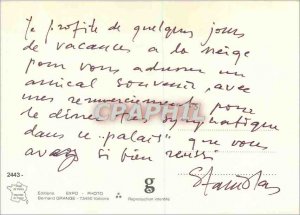 Je profite de quelques jours
de vacances a la neige
pour vous adresser un
amical souvenir, avec
mes remerciements pour
le diner très sympathique
dans ce "palais" que vous
avez si bien reussi
Stanislas
2443 -
Editions EXPO - PHOTO
Bernard GRANGE - 73450 Valloire
g
Reproduction interdite
CPAPHIL